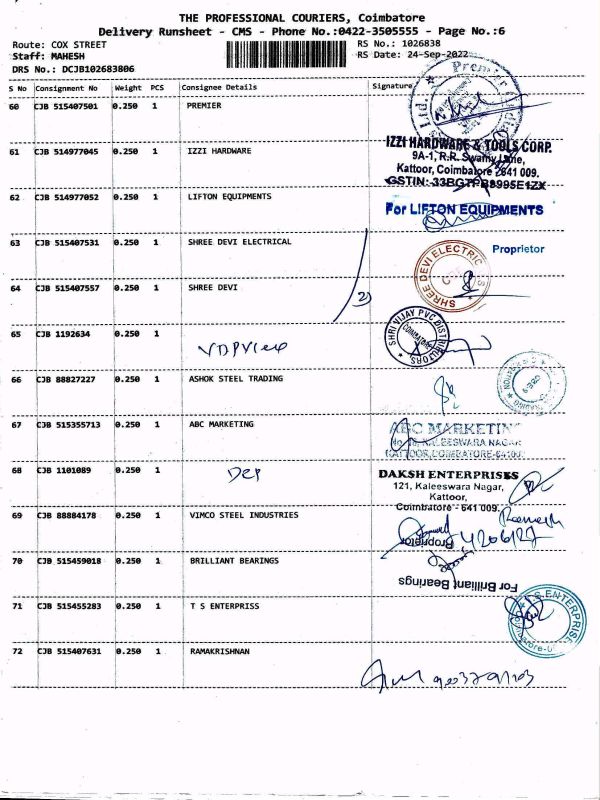 THE PROFESSIONAL COURIERS, Coimbatore
Delivery Runsheet - CMS - Phone No.:0422-3505555 - Page No.:6
Route: COX STREET RS No.: 1026838
Staff: MAHESH RS Date: 24-Sep-2022
DRS No.: DCJB102683806
S No Consignment No Weight PCS Consignee Details Signature
60 CJB 515407501 0.250 1 PREMIER
Premier
Ltd.
61 CJB 514977045 0.250 1 IZZI HARDWARE
IZZI HARDWARE & TOOLS CORP.
9A-1, R.R. Swamy Lane,
Kattoor, Coimbatore 641 009.
62 CJB 514977052 0.250 1 LIFTON EQUIPMENTS
For LIFTON EQUIPMENTS
Proprietor
63 CJB 515407531 0.250 1 SHREE DEVI ELECTRICAL
SHREE DEVI ELECTRICALS
64 CJB 515407557 0.250 1 SHREE DEVI
2)
65 CJB 1192634 0.250 1
SHRI VIJAY PVC DISTRIBUTORS
COIMBATORE
66 CJB 88827227 0.250 1 ASHOK STEEL TRADING
67 CJB 515355713 0.250 1 ABC MARKETING
ABC MARKETING
KALEESWARA NAGAR
KATTOOR, COIMBATORE-641009
68 CJB 1101089 0.250 1
DEP
DAKSH ENTERPRISES
121, Kaleeswara Nagar,
Kattoor,
Coimbatore - 641 009.
69 CJB 88884178 0.250 1 VIMCO STEEL INDUSTRIES
Ramesh
Proprietor
70 CJB 515459018 0.250 1 BRILLIANT BEARINGS
For Brilliant Bearings
71 CJB 515455283 0.250 1 T S ENTERPRISS
T.S. ENTERPRISE
72 CJB 515407631 0.250 1 RAMAKRISHNAN